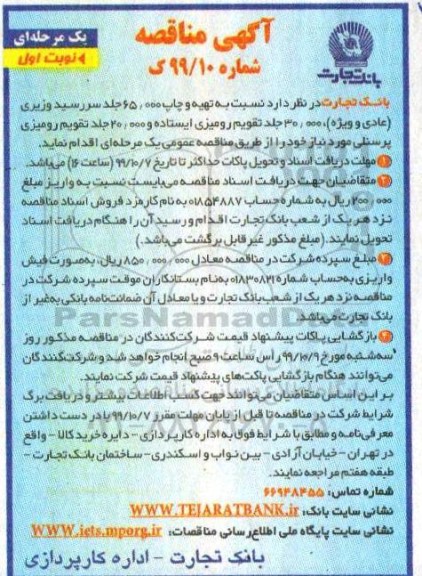 آگهی مناقصه
شماره ۹۹/۱۰ ک
یک مرحله‌ای
نوبت اول
بانک تجارت
بانک تجارت در نظر دارد نسبت به تهیه و چاپ ۶۵٫۰۰۰ جلد سررسید وزیری
(عادی و ویژه)، ۳۰٫۰۰۰ جلد تقویم رومیزی ایستاده و ۲۰٫۰۰۰ جلد تقویم رومیزی
پرسنلی مورد نیاز خود را از طریق مناقصه عمومی یک مرحله‌ای اقدام نماید.
۱ مهلت دریافت اسناد و تحویل پاکات حداکثر تا تاریخ ۹۹/۱۰/۷ (ساعت ۱۶) می‌باشد.
۲ متقاضیان جهت دریافت اسناد مناقصه می‌بایست نسبت به واریز مبلغ
۲۰۰٫۰۰۰ ریال به شماره حساب ۰۱۸۵۴۸۸۷ به نام کارمزد فروش اسناد مناقصه
نزد هر یک از شعب بانک تجارت اقدام و رسید آن را هنگام دریافت اسناد
تحویل نمایند. (مبلغ مذکور غیر قابل برگشت می‌باشد.)
۳ مبلغ سپرده شرکت در مناقصه معادل ۸۵۰٫۰۰۰٫۰۰۰ ریال، به‌صورت فیش
واریزی به‌حساب شماره ۰۱۸۳۰۸۲۱ به‌نام بستانکاران موقت سپرده شرکت در
مناقصه نزد هر یک از شعب بانک تجارت و یا معادل آن ضمانت‌نامه بانکی به‌غیر از
بانک تجارت می‌باشد.
۴ بازگشایی پاکات پیشنهاد قیمت شرکت‌کنندگان در مناقصه مذکور روز
سه‌شنبه مورخ ۹۹/۱۰/۹ رأس ساعت ۹ صبح انجام خواهد شد و شرکت‌کنندگان
می‌توانند هنگام بازگشایی پاکت‌های پیشنهاد قیمت شرکت نمایند.
بر این اساس متقاضیان می‌توانند جهت کسب اطلاعات بیشتر و دریافت برگ
شرایط شرکت در مناقصه تا قبل از پایان مهلت مقرر ۹۹/۱۰/۷ با در دست داشتن
معرفی‌نامه و مطابق با شرایط فوق به اداره کارپردازی - دایره خرید کالا - واقع
در تهران - خیابان آزادی - بین نواب و اسکندری - ساختمان بانک تجارت -
طبقه هفتم مراجعه نمایند.
شماره تماس: ۶۶۹۴۸۴۵۵
نشانی سایت بانک: WWW.TEJARATBANK.ir
نشانی سایت پایگاه ملی اطلاع‌رسانی مناقصات: WWW.iets.mporg.ir
بانک تجارت - اداره کارپردازی